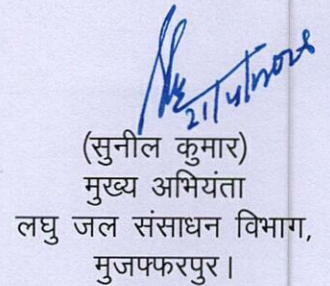 (सुनील कुमार)
मुख्य अभियंता
लघु जल संसाधन विभाग,
मुजफ्फरपुर।